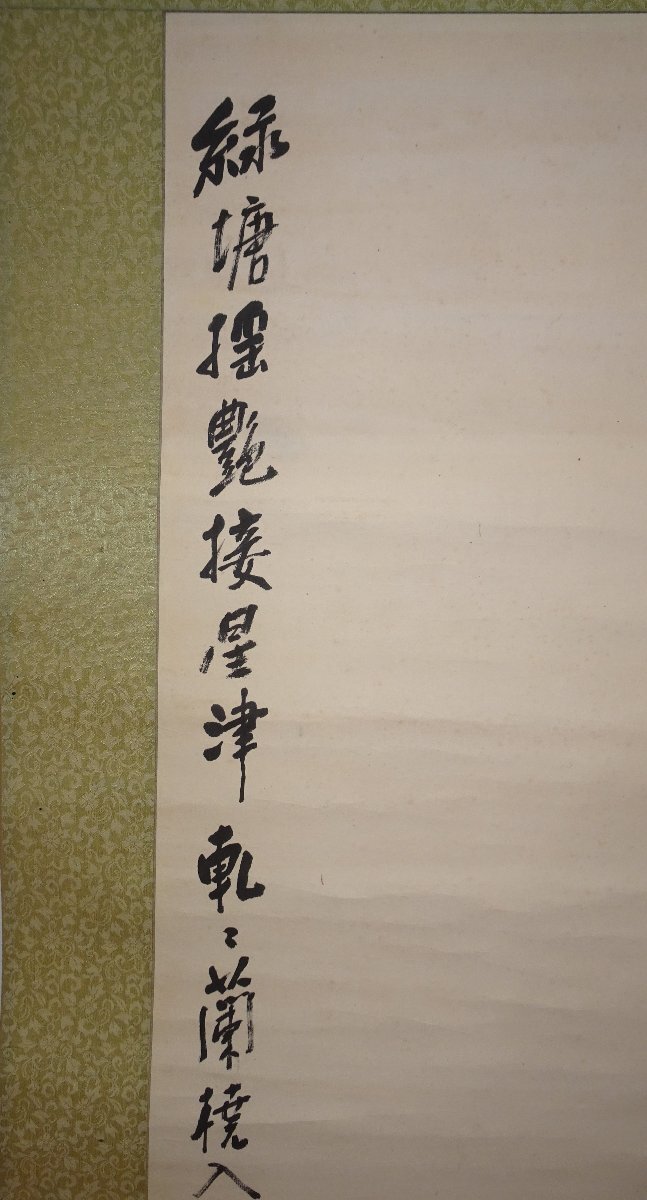 綠塘搖艷接星津軋〻蘭橈入